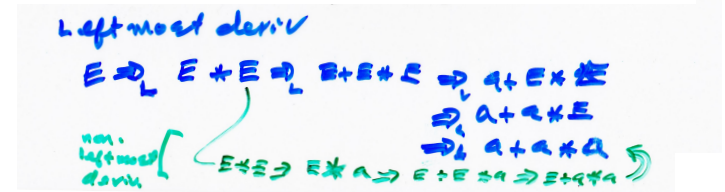 Leftmost deriv
E ⇒L E * E ⇒L E+E*E ⇒L a+E*E
⇒L a+a*E
⇒L a+a*a
non-
leftmost
deriv
E*E ⇒ E*a ⇒ E+E*a ⇒ E+a*a